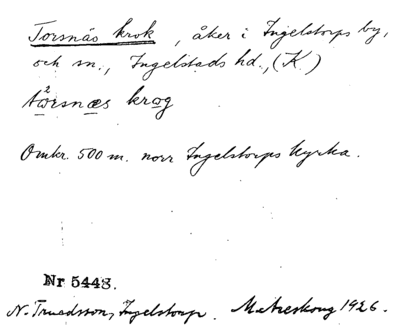 Torsnäs krok, åker i Ingelstorps by,
och sn., Ingelstads hd., (K.)
krog
Omkr. 500 m. norr Ingelstorps kyrka.
Nr 5448.
N. Truedsson, Ingelstorp. 1926.